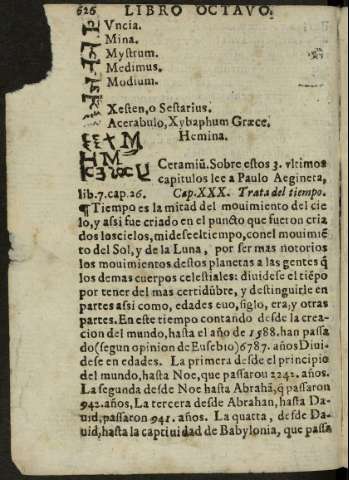 626 LIBRO OCTAVO.
Vncia.
Mina.
Mystrum.
Medimus.
Modium.
Xesten, o Sestarius.
Acerabulo, Xybaphum Græce.
Hemina.
Ceramiũ. Sobre estos 3. vltimos
capitulos lee a Paulo Aegineta,
lib. 7. cap. 26. Cap. XXX. Trata del tiempo.
¶ Tiempo es la mitad del mouimiento del cie
lo, y assi fue criado en el puncto que fueron cria
dos los cielos, mide se el tiempo, con el mouimiē
to del Sol, y de la Luna, por ser mas notorios
los mouimientos destos planetas a las gentes q̃
los demas cuerpos celestiales: diuidese el tiēpo
por tener del mas certidũbre, y destinguirle en
partes assi como, edades euo, siglo, era, y otras
partes. En este tiempo contando desde la crea-
cion del mundo, hasta el año de 1588. han passa
do (segun opinion de Eusebio) 6787. años Diui-
dese en edades. La primera desde el principio
del mundo, hasta Noe, que passarou 2242. años.
La segunda desde Noe hasta Abrahã, q̃ passaron
942. años, La tercera desde Abrahan, hasta Da-
uid, passaron 941. años. La quatta, desde Da-
uid, hasta la captiuidad de Babylonia, que passa